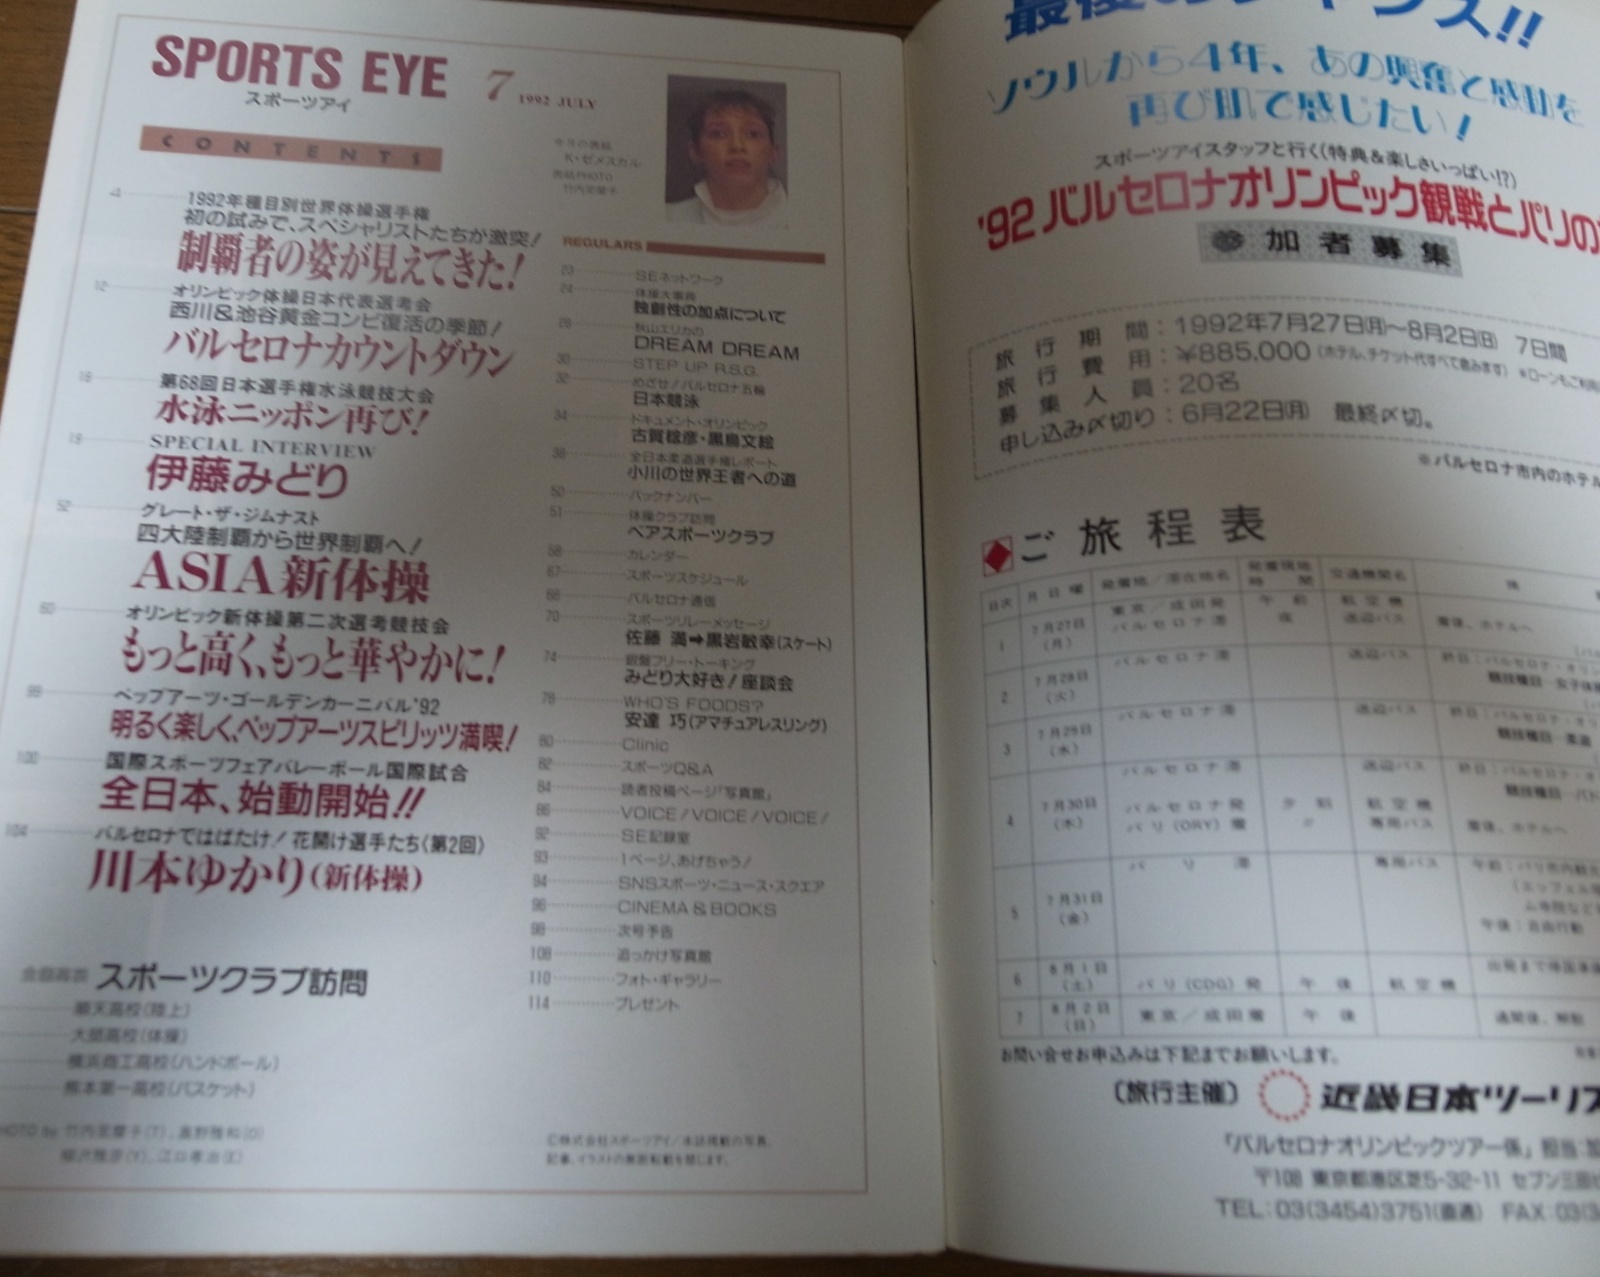 SPORTS EYE 7 1992 JULY
スポーツアイ
CONTENTS
今月の表紙
K・ゼメスカル
表紙PHOTO
竹内里摩子
4 1992年種目別世界体操選手権
初の試みで、スペシャリストたちが激突!
制覇者の姿が見えてきた!
12 オリンピック体操日本代表選考会
西川&池谷黄金コンビ復活の季節!
バルセロナカウントダウン
16 第68回日本選手権水泳競技大会
水泳ニッポン再び!
19 SPECIAL INTERVIEW
伊藤みどり
52 グレート・ザ・ジムナスト
四大陸制覇から世界制覇へ!
ASIA新体操
60 オリンピック新体操第二次選考競技会
もっと高く、もっと華やかに!
99 ペップアーツ・ゴールデンカーニバル'92
明るく楽しく、ペップアーツスピリッツ満喫!
100 国際スポーツフェアバレーボール国際試合
全日本、始動開始!!
104 バルセロナではばたけ!花開け選手たち〈第2回〉
川本ゆかり(新体操)
スポーツクラブ訪問
順天高校(陸上)
大原高校(体操)
横浜商工高校(ハンドボール)
熊本第一高校(バスケット)
REGULARS
23 SEネットワーク
24 体操大事典
独創性の加点について
26 秋山エリカの
DREAM DREAM
30 STEP UP R.S.G.
32 めざせ!バルセロナ五輪
日本競泳
34 ドキュメント・オリンピック
古賀稔彦・黒鳥文絵
36 全日本柔道選手権レポート
小川の世界王者への道
50 バックナンバー
51 体操クラブ訪問
ベアスポーツクラブ
58 カレンダー
67 スポーツスケジュール
68 バルセロナ通信
70 スポーツリレーメッセージ
佐藤 満➡黒岩敏幸(スケート)
74 銀盤フリー・トーキング
みどり大好き!座談会
78 WHO'S FOODS?
安達 巧(アマチュアレスリング)
80 Clinic
82 スポーツQ&A
84 読者投稿ページ「写真館」
86 VOICE/VOICE/VOICE/
92 SE記録室
93 1ページ、あげちゃう!
94 SNSスポーツ・ニュース・スクエア
96 CINEMA & BOOKS
98 次号予告
108 追っかけ写真館
110 フォト・ギャラリー
114 プレゼント
©株式会社スポーツアイ/本誌掲載の写真、
記事、イラストの無断転載を禁じます。
ソウルから4年、あの興奮と感動を
再び肌で感じたい!
スポーツアイスタッフと行く(特典&楽しさいっぱい!?)
'92バルセロナオリンピック観戦とパリの
参加者募集
旅行期間:1992年7月27日(月)〜8月2日(日) 7日間
旅行費用:¥885,000(ホテル、チケット代すべて含みます)
募集人員:20名
申し込み〆切り:6月22日(月) 最終〆切。
※バルセロナ市内のホテル
◆ご旅程表
日次 月日曜 発着地/滞在地名 発着現地時間 交通機関名
1 7月27日(月) 東京/成田発 午前 航空機
バルセロナ着 夜 送迎バス 着後、ホテルへ
2 7月28日(火) バルセロナ滞 送迎バス
3 7月29日(水) バルセロナ滞 送迎バス
競技種目…柔道
4 7月30日(木) バルセロナ滞 送迎バス
バルセロナ発 夕刻 航空機
パリ(ORY)着 〃 専用バス 着後、ホテルへ
5 7月31日(金) パリ滞 専用バス
午後:自由行動
6 8月1日(土) パリ(CDG)発 午後 航空機
7 8月2日(日) 東京/成田着 午後 通関後、解散
お問い合せお申込みは下記までお願いします。
〔旅行主催〕 近畿日本ツーリス
「バルセロナオリンピックツアー係」担当:加
〒108 東京都港区芝5-32-11 セブン三田ビ
TEL:03(3454)3751(直通) FAX:03(3